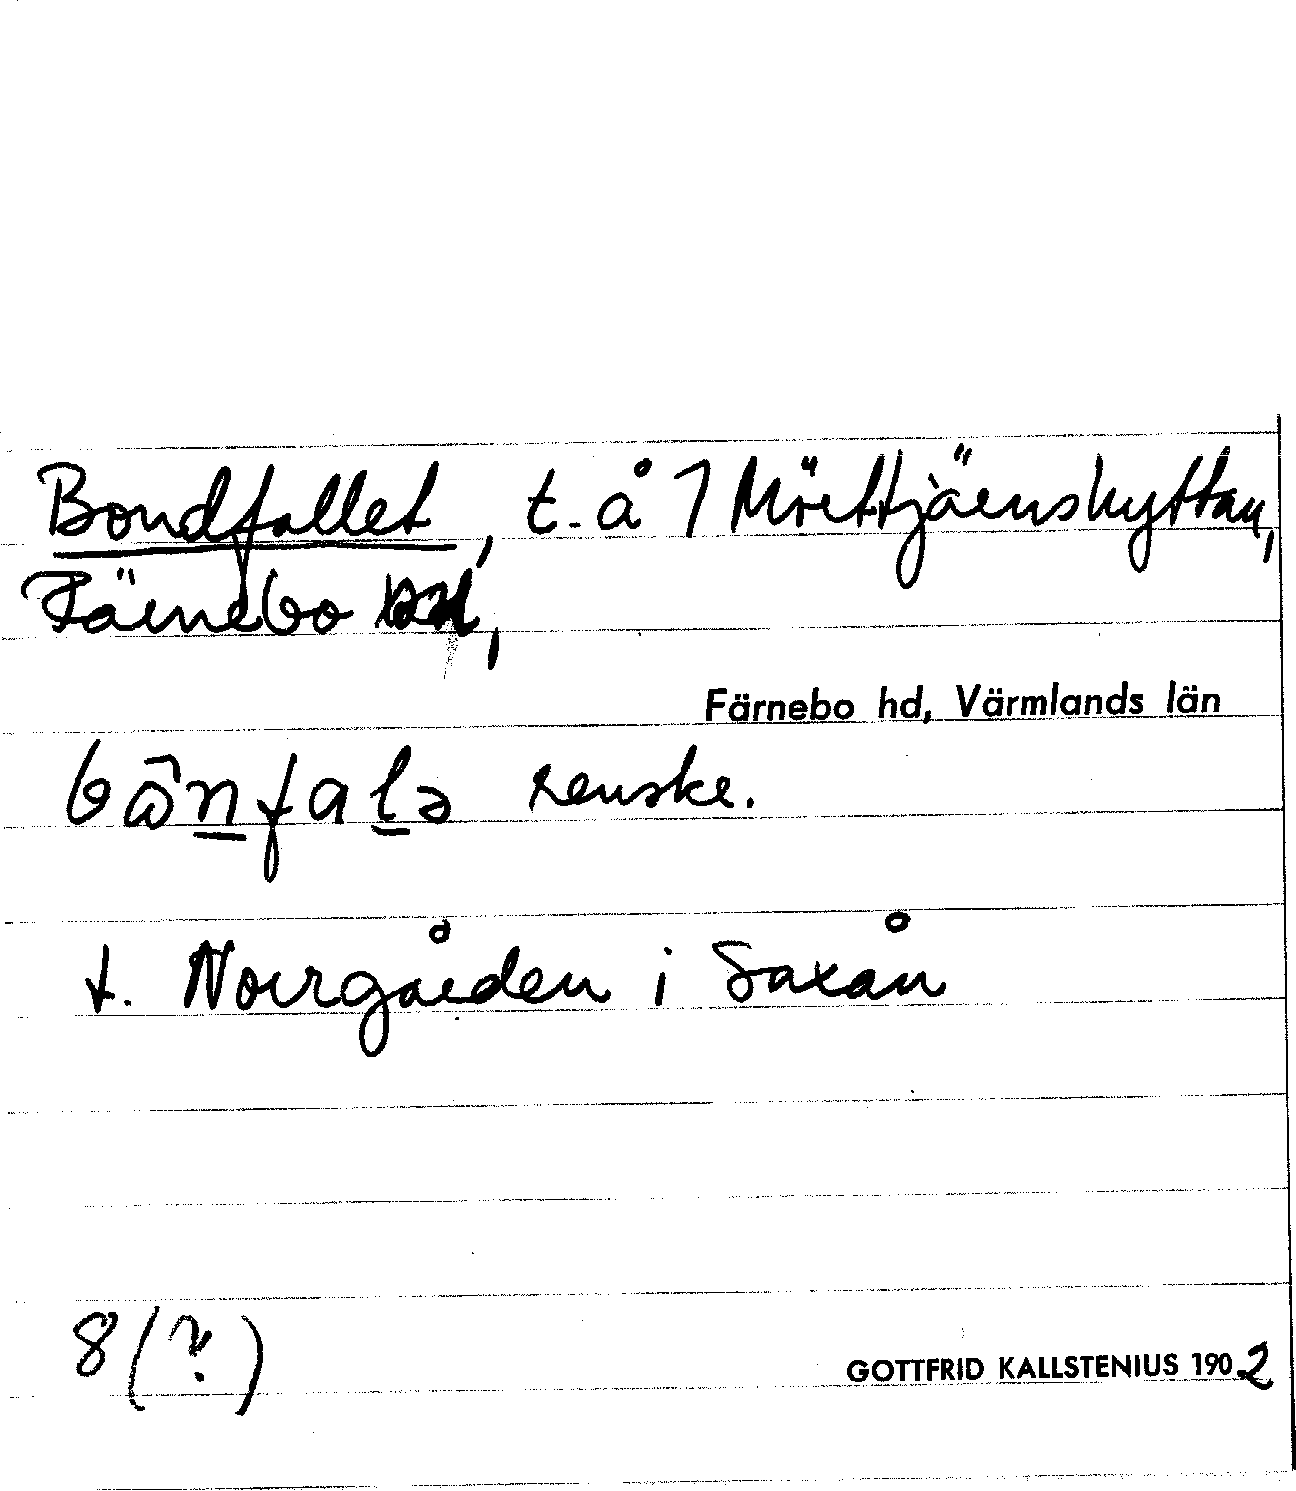 Bondfallet, t. å 1 Mörttjärnshyttan,
Färnebo sn,
Färnebo hd, Värmlands län
bo᷈nfalə renske.
t. Norrgården i Saxån
8 (?)
GOTTFRID KALLSTENIUS 1902